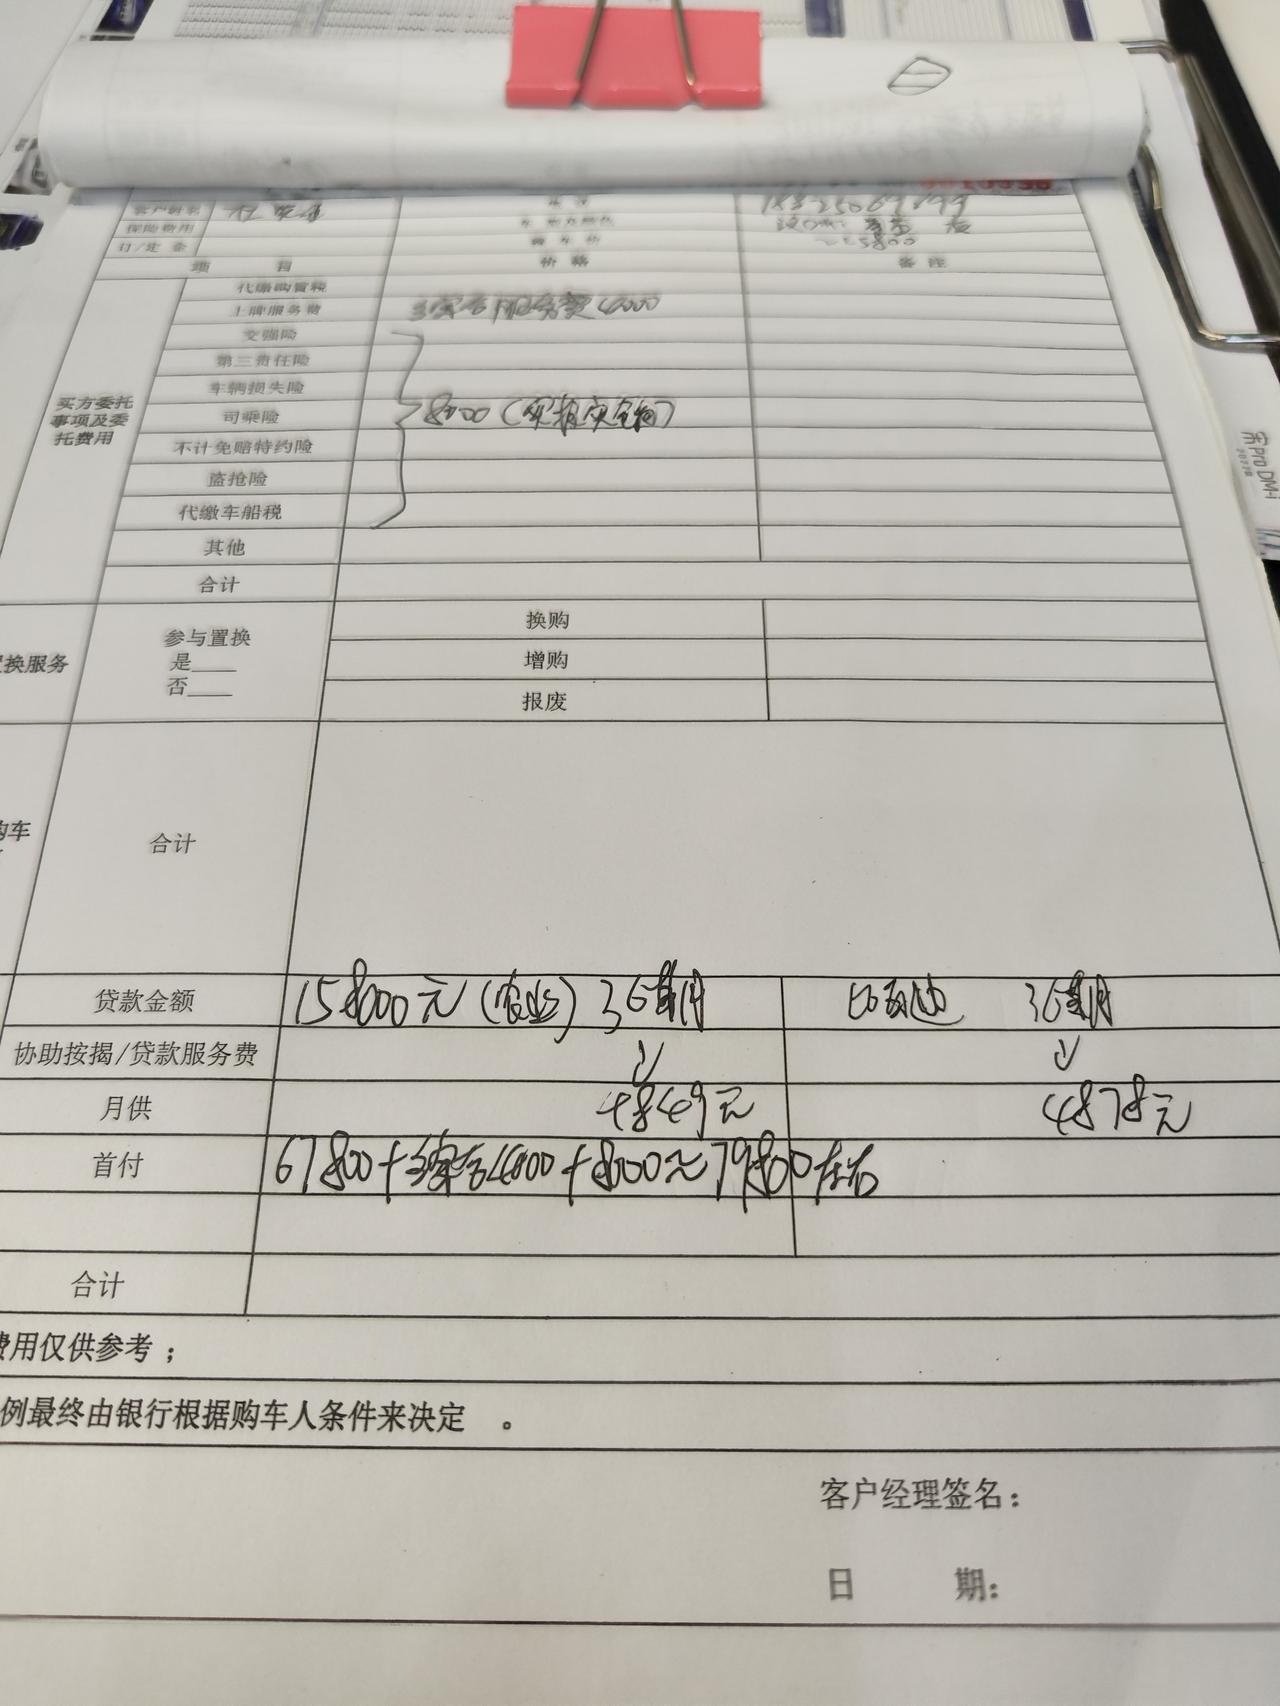 客户姓名
保险费用
订/定金
购车价 225800
项 目 价 格 备 注
代缴购置税
上牌服务费 综合服务费4000
交强险
第三责任险
车辆损失险
买方委托事项及委托费用
司乘险 8000(实报实销)
不计免赔特约险
盗抢险
代缴车船税
其他
合计
换服务
参与置换
是____
否____
换购
增购
报废
购车
合计
贷款金额 158000元(农业) 36期 比亚迪 36期
协助按揭/贷款服务费
月供 4849元 4878元
首付 67800+综合4000+8000≈79800左右
合计
费用仅供参考；
例最终由银行根据购车人条件来决定 。
客户经理签名：
日 期：
Pro DM-i